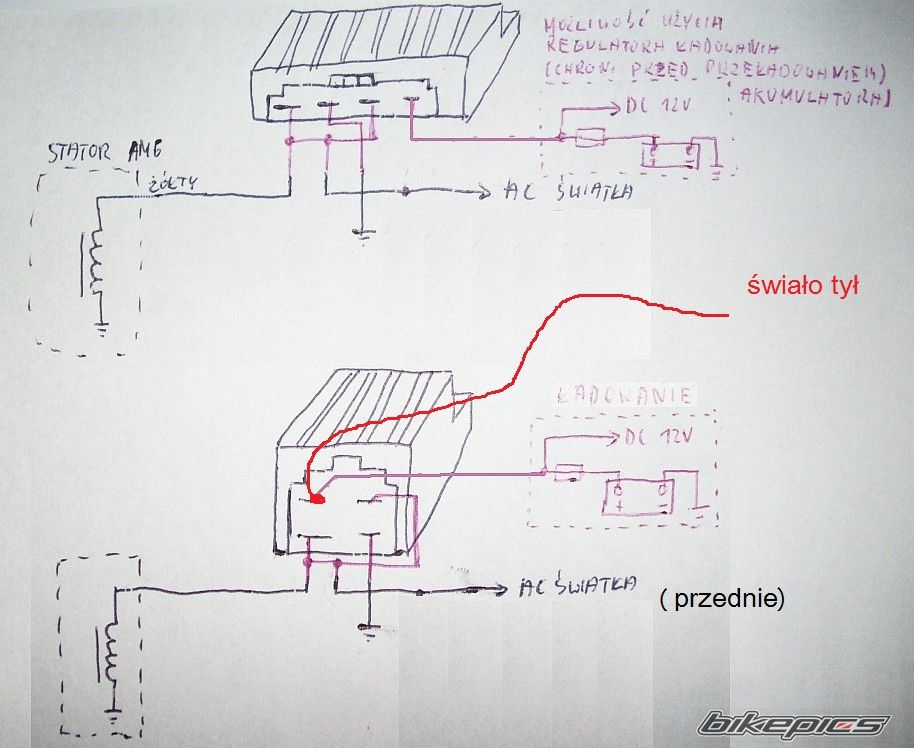 MOŻLIWOŚĆ UŻYCIA
REGULATORA ŁADOWANIA
(CHRONI PRZED PRZEŁADOWANIEM)
AKUMULATORA)
DC 12V
STATOR AM6
ŻÓŁTY
AC ŚWIATŁA
+ -
świało tył
ŁADOWANIE
DC 12V
+ -
AC ŚWIATŁA
( przednie)
bikepics